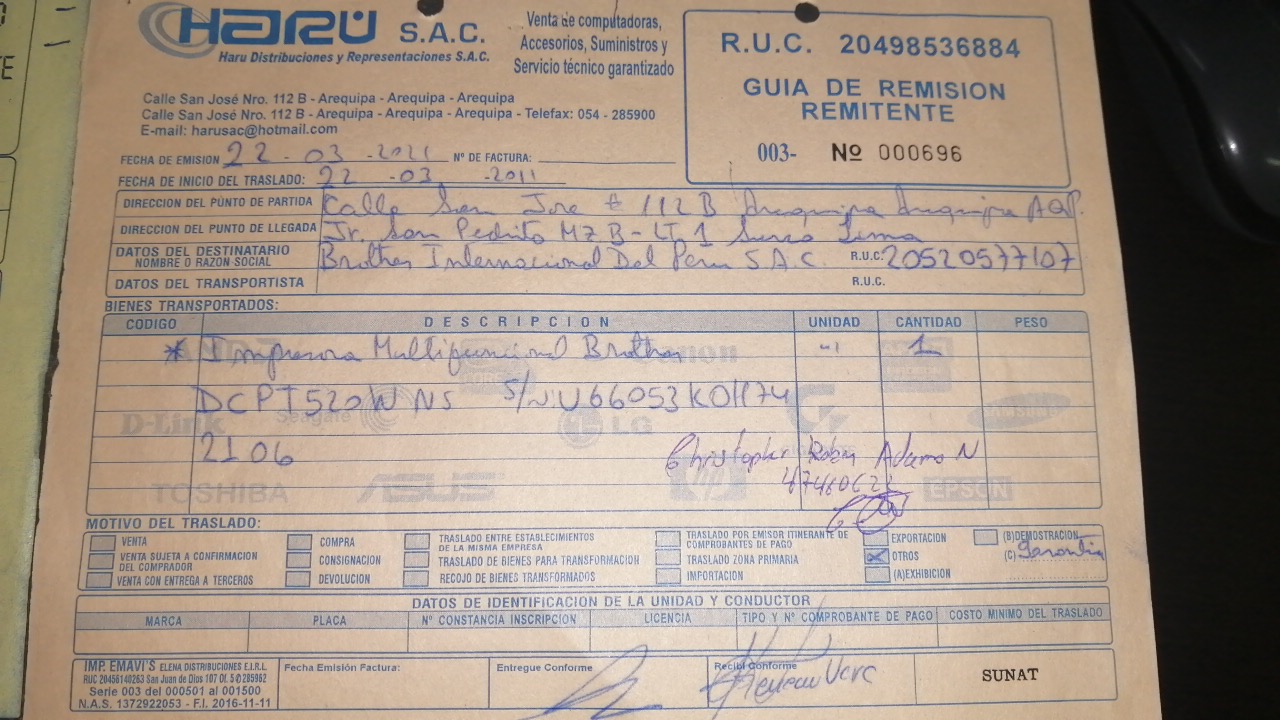 HARU S.A.C.
Haru Distribuciones y Representaciones S.A.C.
Venta de computadoras,
Accesorios, Suministros y
Servicio técnico garantizado
Calle San José Nro. 112 B - Arequipa - Arequipa - Arequipa
Calle San José Nro. 112 B - Arequipa - Arequipa - Arequipa - Telefax: 054 - 285900
E-mail: harusac@hotmail.com
R.U.C. 20498536884
GUIA DE REMISION
REMITENTE
003- Nº 000696
FECHA DE EMISION 22-03-2021 Nº DE FACTURA:
FECHA DE INICIO DEL TRASLADO: 22-03-2011
DIRECCION DEL PUNTO DE PARTIDA Calle San Jose # 112 B Arequipa Arequipa AQP.
DIRECCION DEL PUNTO DE LLEGADA Jr. San Pedrito MZ B-LT.1 Surco Lima
DATOS DEL DESTINATARIO
NOMBRE O RAZON SOCIAL Brother Internacional Del Peru S.A.C. R.U.C. 20520577107
DATOS DEL TRANSPORTISTA R.U.C.
BIENES TRANSPORTADOS:
CODIGO DESCRIPCION UNIDAD CANTIDAD PESO
* Impresora Multifuncional Brother 1
DCPT520W NS S/N U66053K0H74
2106
Christopher Robin Adamo N
CANON
D-Link Seagate LG SAMSUNG
TOSHIBA ASUS hp EPSON
MOTIVO DEL TRASLADO:
VENTA
VENTA SUJETA A CONFIRMACION
DEL COMPRADOR
VENTA CON ENTREGA A TERCEROS
COMPRA
CONSIGNACION
DEVOLUCION
TRASLADO ENTRE ESTABLECIMIENTOS
DE LA MISMA EMPRESA
TRASLADO DE BIENES PARA TRANSFORMACION
RECOJO DE BIENES TRANSFORMADOS
TRASLADO POR EMISOR ITINERANTE DE
COMPROBANTES DE PAGO
TRASLADO ZONA PRIMARIA
IMPORTACION
EXPORTACION
OTROS
(A)EXHIBICION
(B)DEMOSTRACION
(C) Garantia
DATOS DE IDENTIFICACION DE LA UNIDAD Y CONDUCTOR
MARCA PLACA Nº CONSTANCIA INSCRIPCION LICENCIA TIPO Y Nº COMPROBANTE DE PAGO COSTO MINIMO DEL TRASLADO
IMP. EMAVI'S ELENA DISTRIBUCIONES E.I.R.L.
RUC 20456140263 San Juan de Dios 107 Of. 5 ✆ 285962
Serie 003 del 000501 al 001500
N.A.S. 1372922053 - F.I. 2016-11-11
Fecha Emisión Factura:
Entregue Conforme
Recibí Conforme
SUNAT